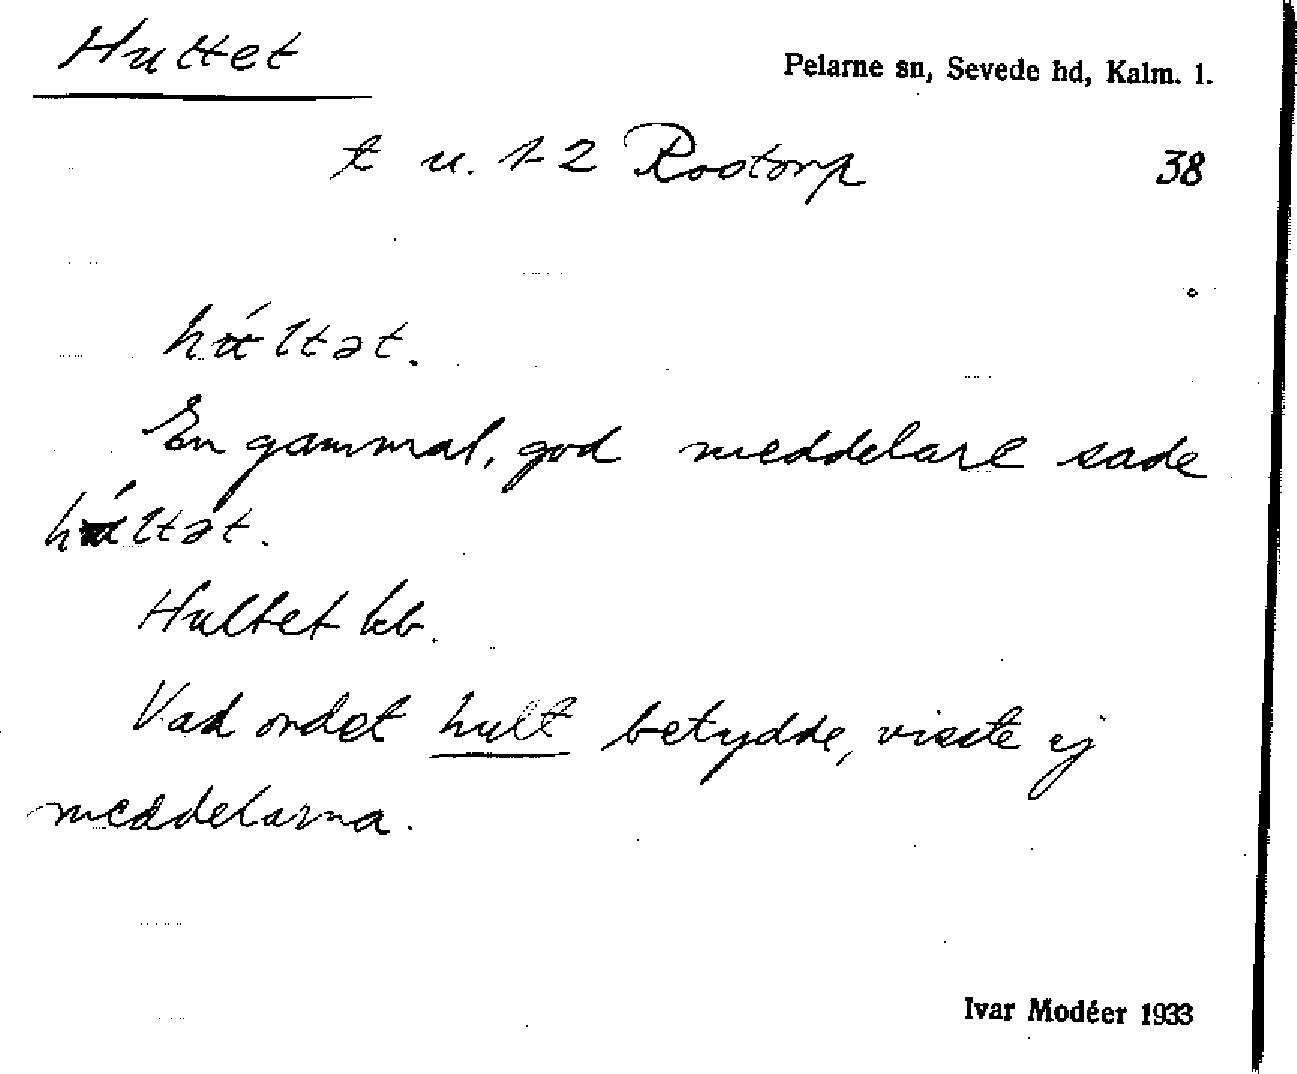 Huttet
Pelarne sn, Sevede hd, Kalm. l.
t u. 1-2 Rostorp 38
En gammal, god meddelare sade
Hultet kb.
Vad ordet hult betydde, visste ej
meddelarna.
Ivar Modéer 1933